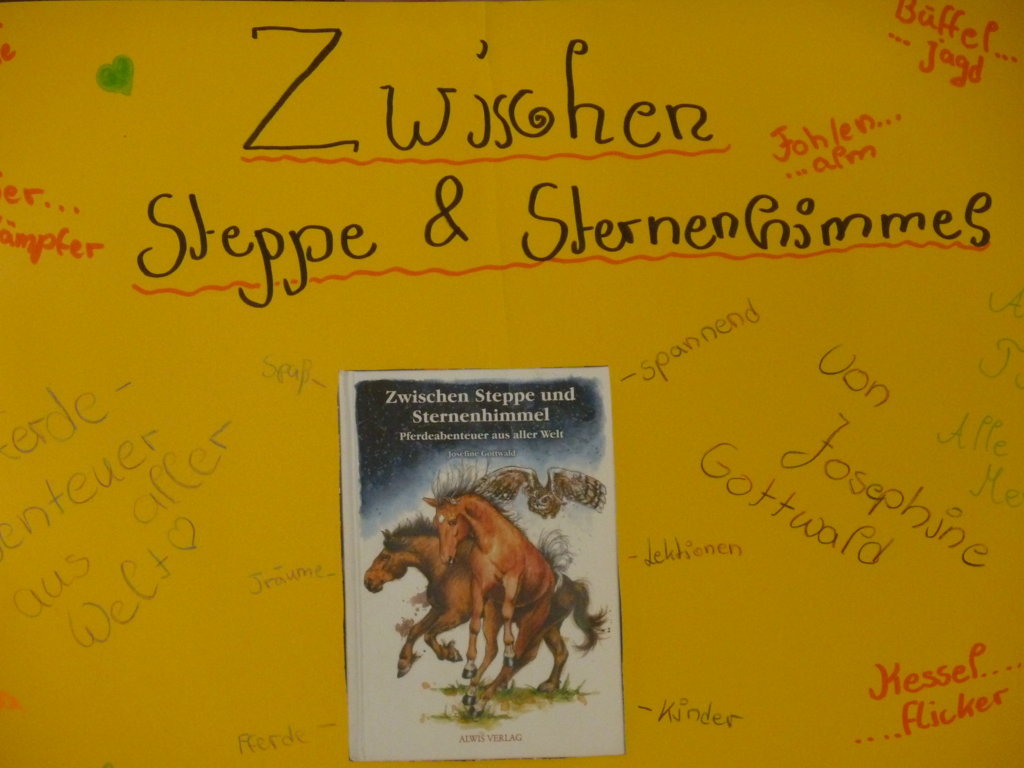 Büffel...
... Jagd
Zwischen
Fohlen...
...alm
Steppe & Sternenhimmel
er...
ämpfer
Spaß -
- spannend
Zwischen Steppe und
Sternenhimmel
Pferdeabenteuer aus aller Welt
Josefine Gottwald
von
Josephine
Gottwald
Alle
ferde -
benteuer
aus aller
Welt ♡
Träume -
- Lektionen
Pferde -
- Kinder
ALWIS VERLAG
Kessel....
....flicker